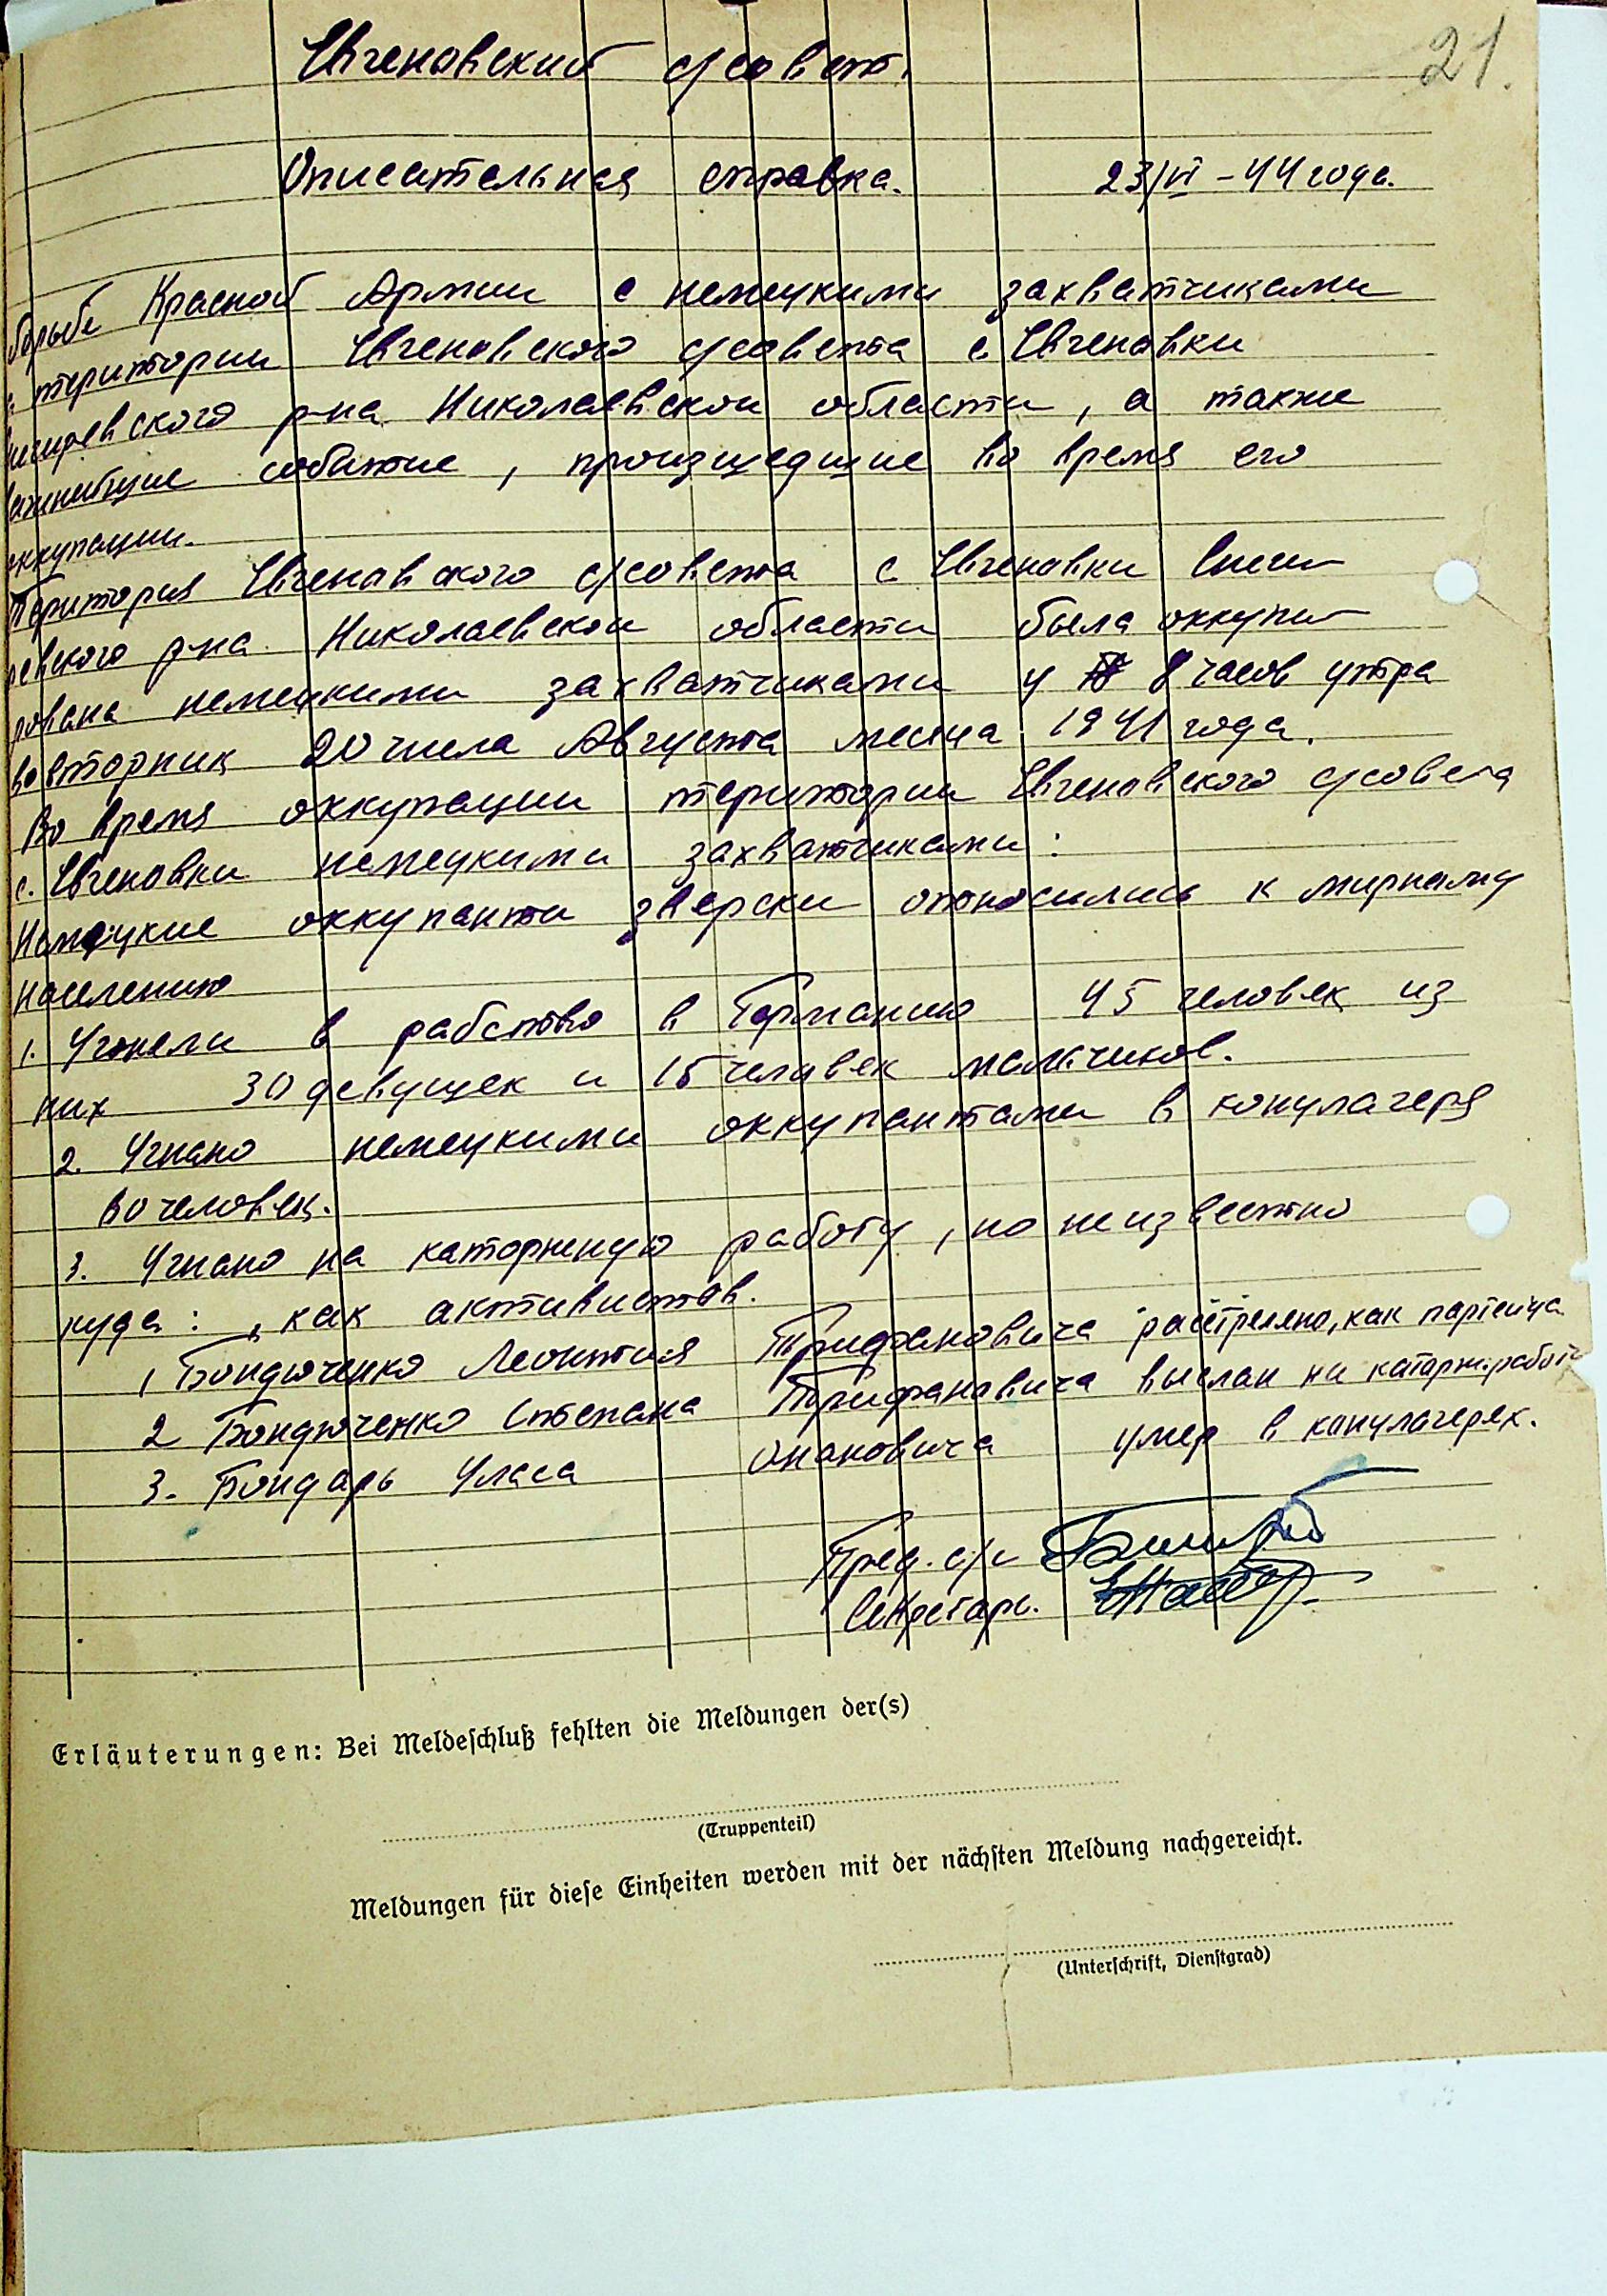 Евгеновский с/совет.
21.
Описательная справка. 23/VI – 44 года.
борьбе Красной Армии с немецкими захватчиками
територии Евгеновского с/совета с Евгеновки
р-на Николаевской области, а также
событие, произшедшие во время его
оккупации.
Територия Евгеновского с/совета с Евгеновки Снеги-
ревского р-на Николаевской области была оккупи-
рована немецкими захватчиками у 8 часов утра
во вторник 20 числа Августа месяца 1941 года.
Во время оккупации територии Евгеновского с/совета
с. Евгеновки немецкими захватчиками:
Немецкие оккупанти зверски относились к мирному
населению
1. Угонели в рабство в Германию 45 человек из
них 30 девущек и 15 человек мальчиков.
2. Угнано немецкими оккупантами в концлагеря
человек.
3. Угнано на каторжную работу, но неизвестно
куда: , как активистов.
1 Бондюченко Леонтия Трифановича расстреляно, как партейца
2 Бондюченко Степана Трифановича выслан на каторж. работу
3. Бондарь Уласа Опановича умер в концлагерях.
Пред. с/с
Секретарь.
Erläuterungen: Bei Meldeschluß fehlten die Meldungen der(s)
(Truppenteil)
Meldungen für diese Einheiten werden mit der nächsten Meldung nachgereicht.
(Unterschrift, Dienstgrad)